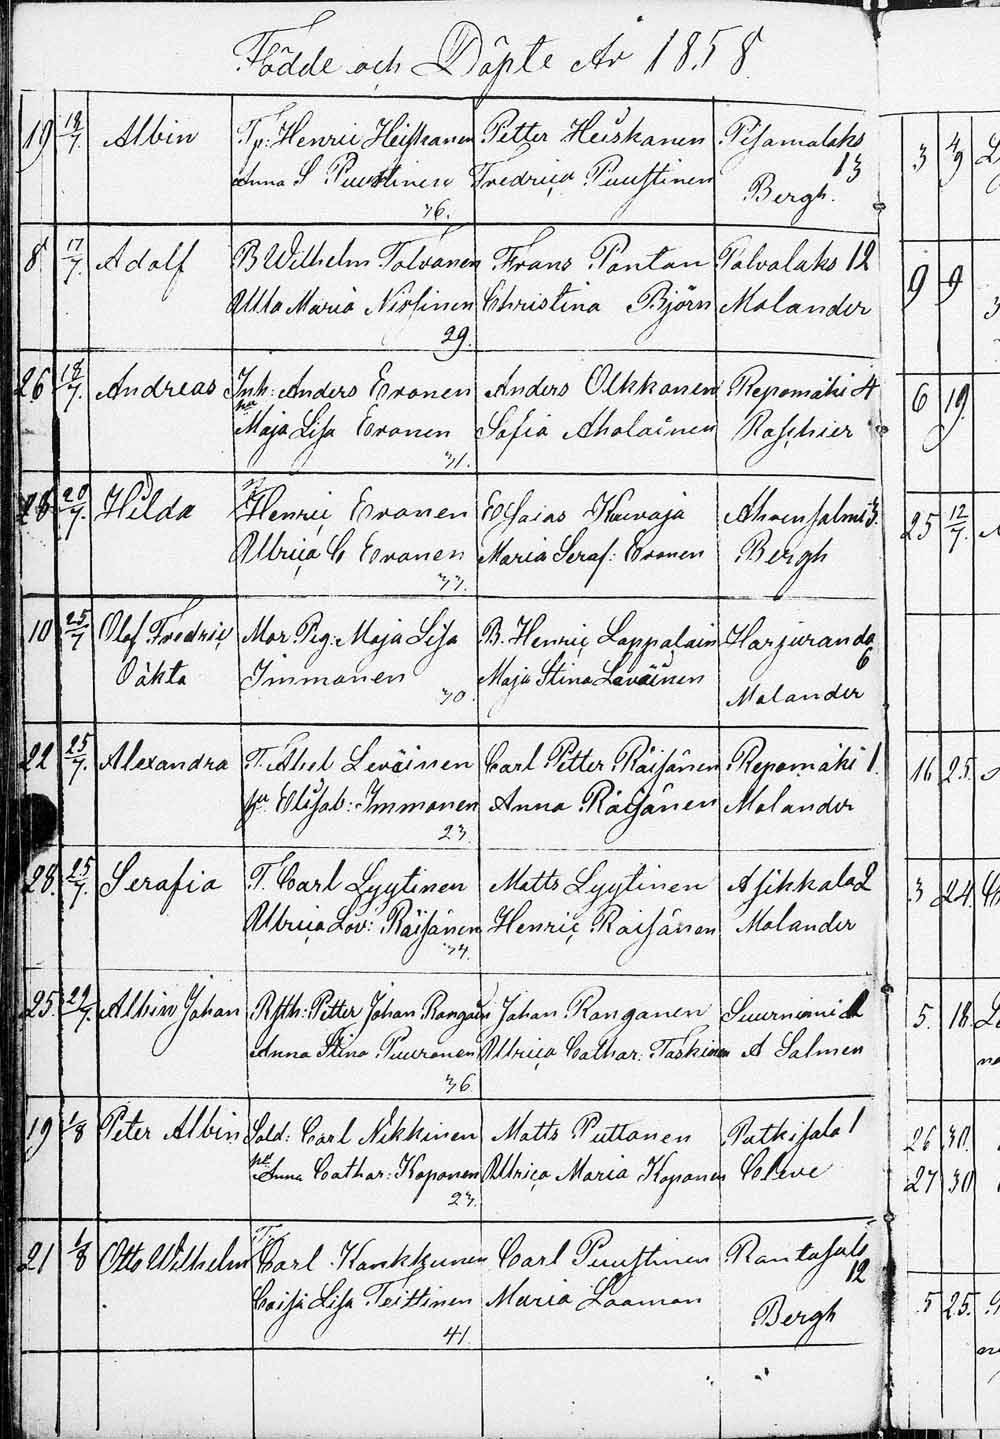 Födde och Döpte År 1858.
19 18/7. Albin Tp: Henric Heiskanen Petter Heiskanen Pisamalaks
Anna S Puustinen Fredrica Puustinen 13
36. Bergh.
8 17/7. Adolf B Wilhelm Tolvanen Frans Pontan Tolvalaks 12
Ulla Maria Nissinen Christina Björn Molander
29.
26 18/7. Andreas Inh: Anders Eronen Anders Olkkonen Repomäki 4
Maja Lisa Eronen Sofia Aholainen Raschier
31.
28 20/7. Hilda Henric Eronen Esaias Kuivaja Ahvensalmi 3.
Ulrica C Eronen Maria Seraf: Eronen Bergh
33.
10 25/7 Olof Fredric Mor Pig: Maja Lisa B. Henric Lappalain Harjuranda
Oäkta Immonen Maja Stina Leväinen 6
30. Molander
22 25/7. Alexandra T. Abel Leväinen Carl Petter Räisänen Repomäki 1
Elisab: Immonen Anna Räisänen Molander
23.
28. 25/7. Serafia T. Carl Lyytinen Matts Lyytinen Asikkala 2
Ulrica Lov: Räisänen Henric Räisänen Molander
34.
25. 29/7. Albin Johan Rsth: Petter Johan Rongain Johan Ronganen Suurniemi 2
Anna Stina Puuronen Ulrica Cathar: Taskinen A Salmen
36
19 1/8 Peter Albin Sold: Carl Nikkinen Matts Puttonen Putkisalo 1
Anna Cathar: Koponen Ulrica Maria Koponen Cleve
23.
21 1/8 Otto Wilhelm Carl Kankkunen Carl Puustinen Rantasalo
Caisa Lisa Teittinen Maria Laaman 12
41. Bergh
3 4/9
9 9
6 19.
25 12/7.
16 25.
3 24.
5. 18.
26 30.
27 30
5 25.